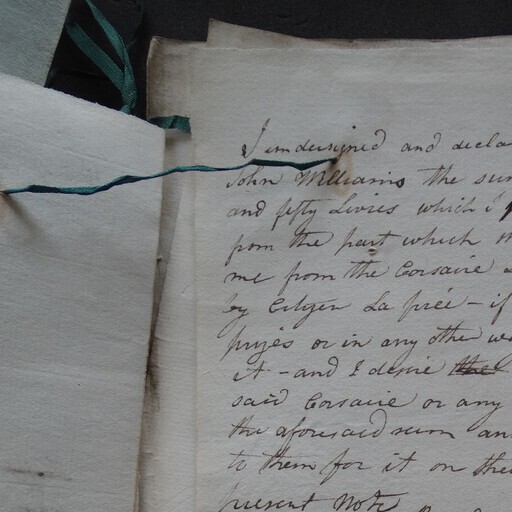 I undersigned and decla
John Williams the sum
and fifty Livres which I
from the part which
me from the Corsaire
by Citizen La frée - if
prizes or in any other wa
it - and I desire the
said Corsaire or any
the aforesaid sum an
to them for it on the
present Note